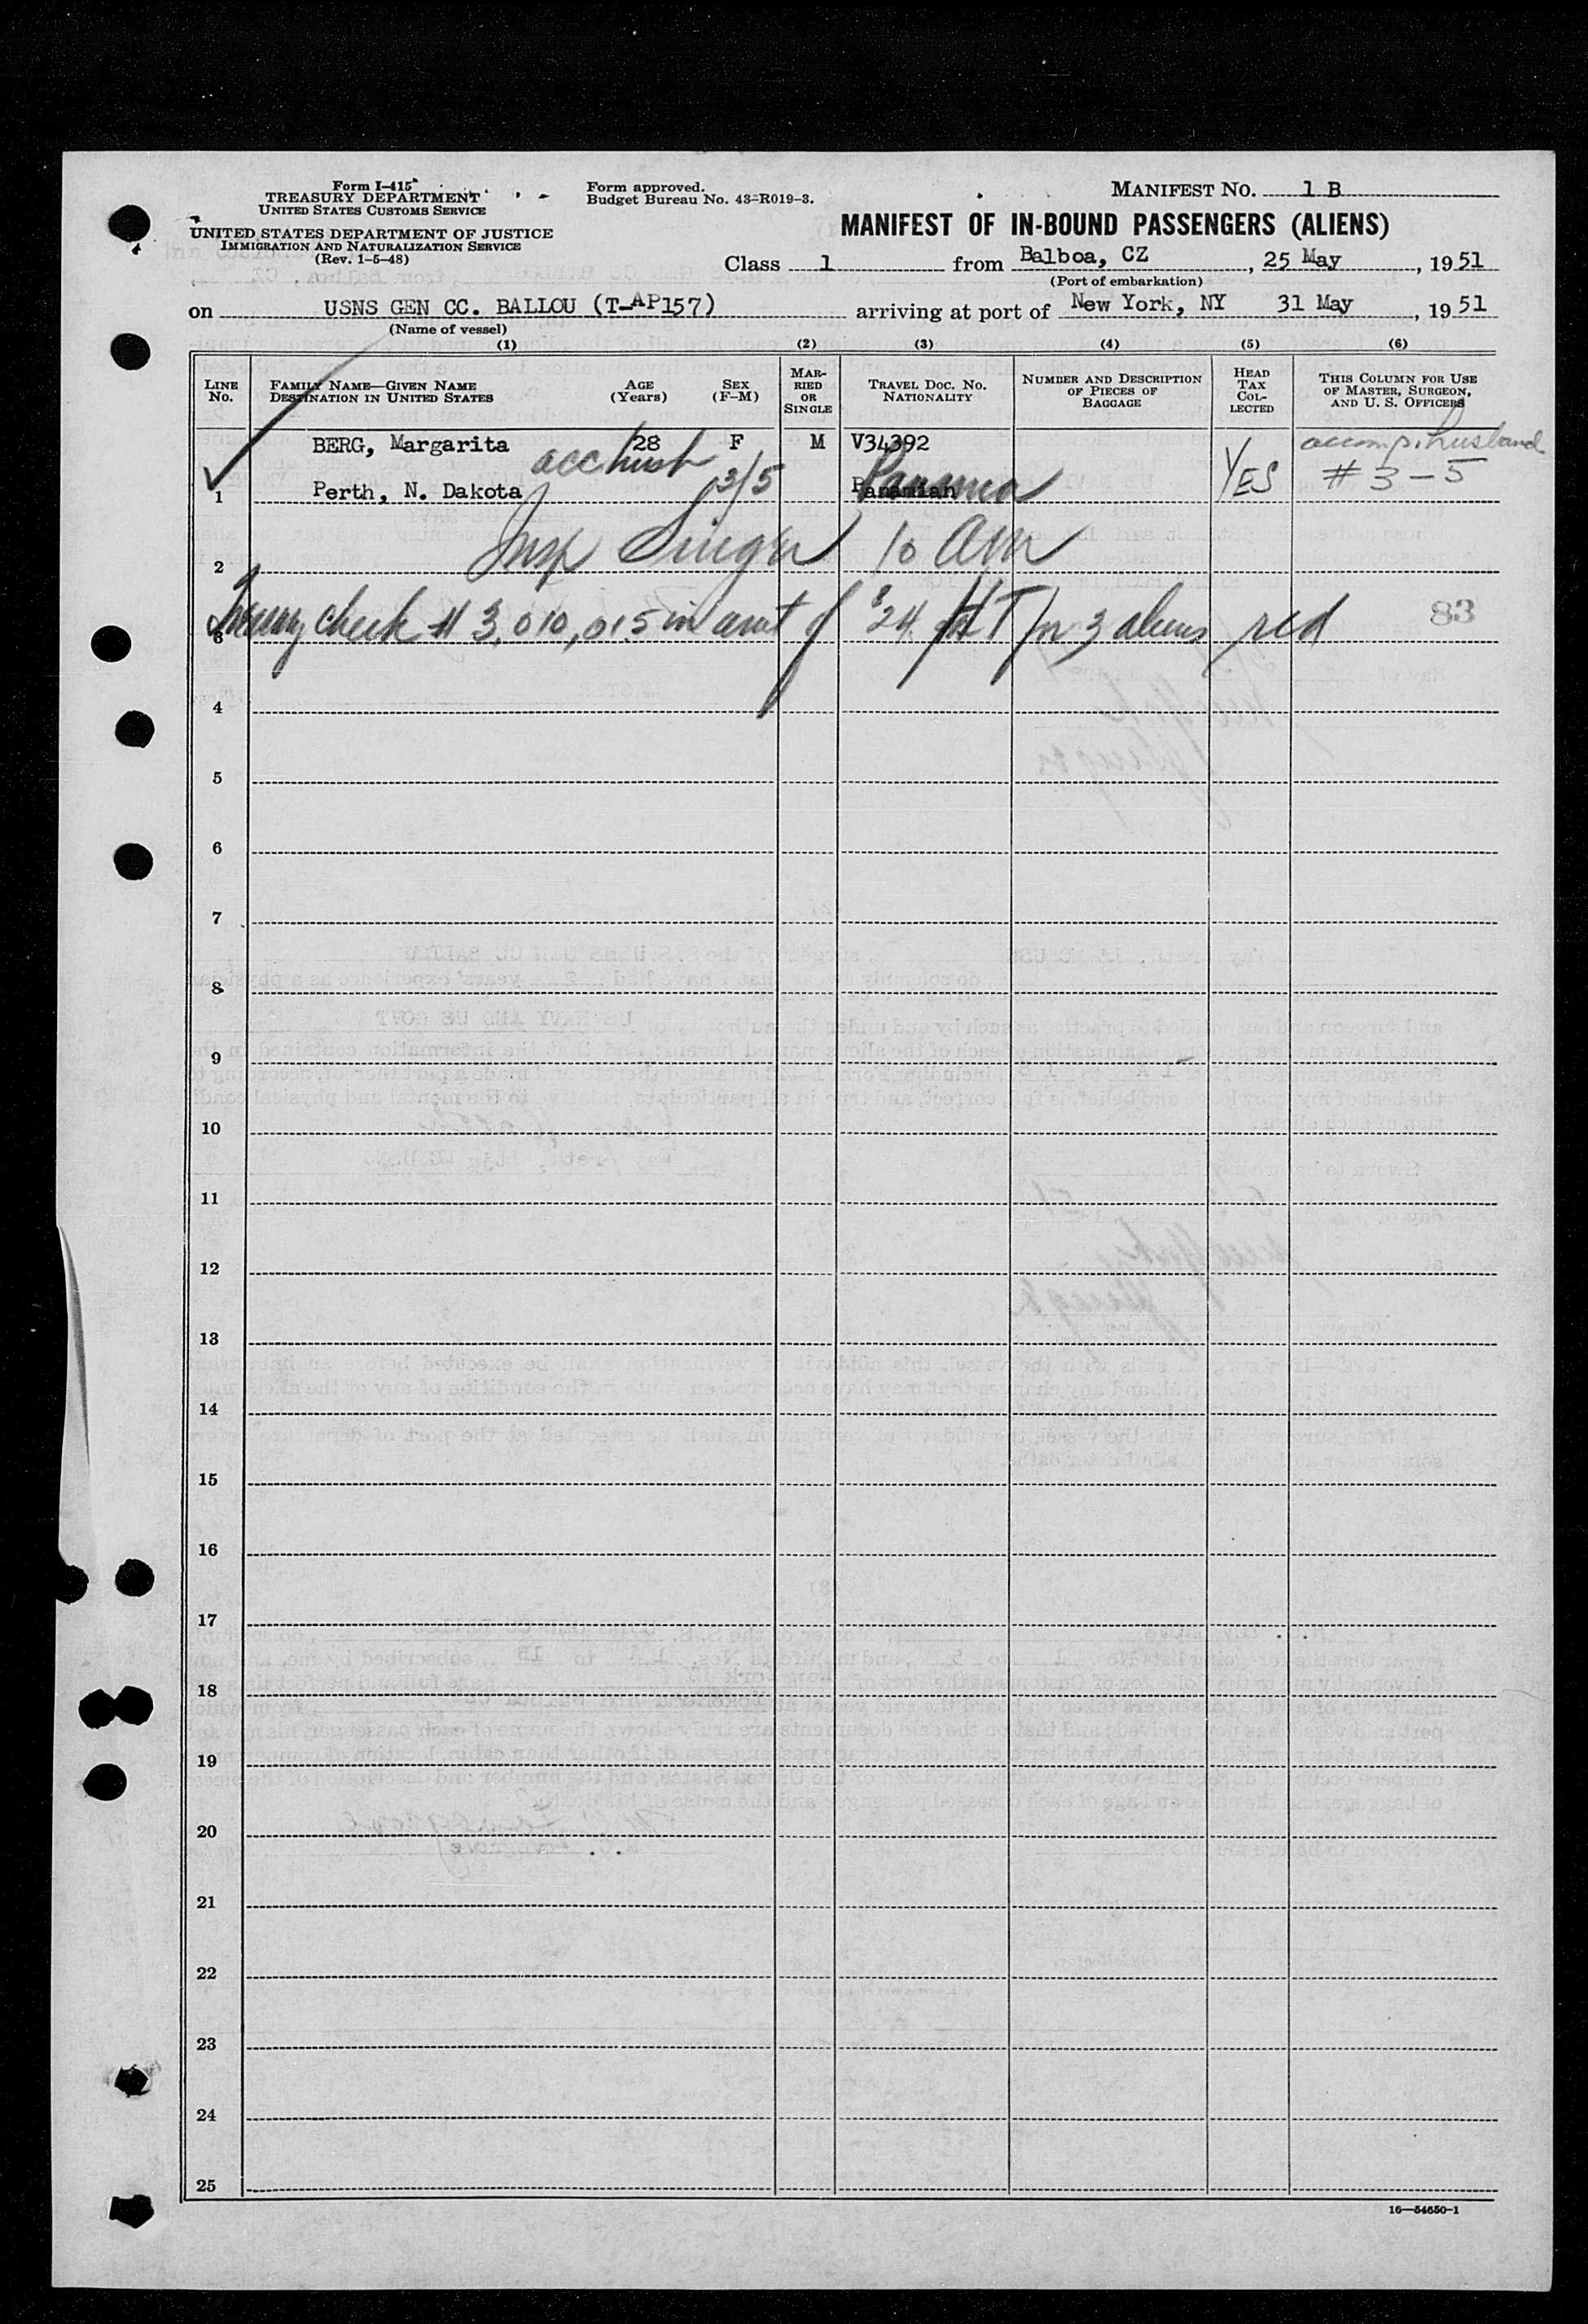 Form I-415
TREASURY DEPARTMENT
UNITED STATES CUSTOMS SERVICE
UNITED STATES DEPARTMENT OF JUSTICE
IMMIGRATION AND NATURALIZATION SERVICE
(Rev. 1-5-48)
Form approved.
Budget Bureau No. 43-R019-3.
MANIFEST NO. 1 B
MANIFEST OF IN-BOUND PASSENGERS (ALIENS)
Class 1 from Balboa, CZ, 25 May, 1951
(Port of embarkation)
on USNS GEN CC. BALLOU (T-AP157) arriving at port of New York, NY 31 May, 1951
(Name of vessel)
(1) (2) (3) (4) (5) (6)
LINE NO. FAMILY NAME—GIVEN NAME DESTINATION IN UNITED STATES AGE (Years) SEX (F-M) MARRIED OR SINGLE TRAVEL DOC. NO. NATIONALITY NUMBER AND DESCRIPTION OF PIECES OF BAGGAGE HEAD TAX COLLECTED THIS COLUMN FOR USE OF MASTER, SURGEON, AND U. S. OFFICERS
BERG, Margarita 28 F M V34392 accomp. husband
acc husb
1 Perth, N. Dakota 3/5 Panamian Panama YES # 3-5
2 Insp Singer 10 AM
3 Treasury check # 3,010,015 in amt of $24 H T for 3 aliens rcd 83
4
5
6
7
8
9
10
11
12
13
14
15
16
17
18
19
20
21
22
23
24
25
16—54650-1